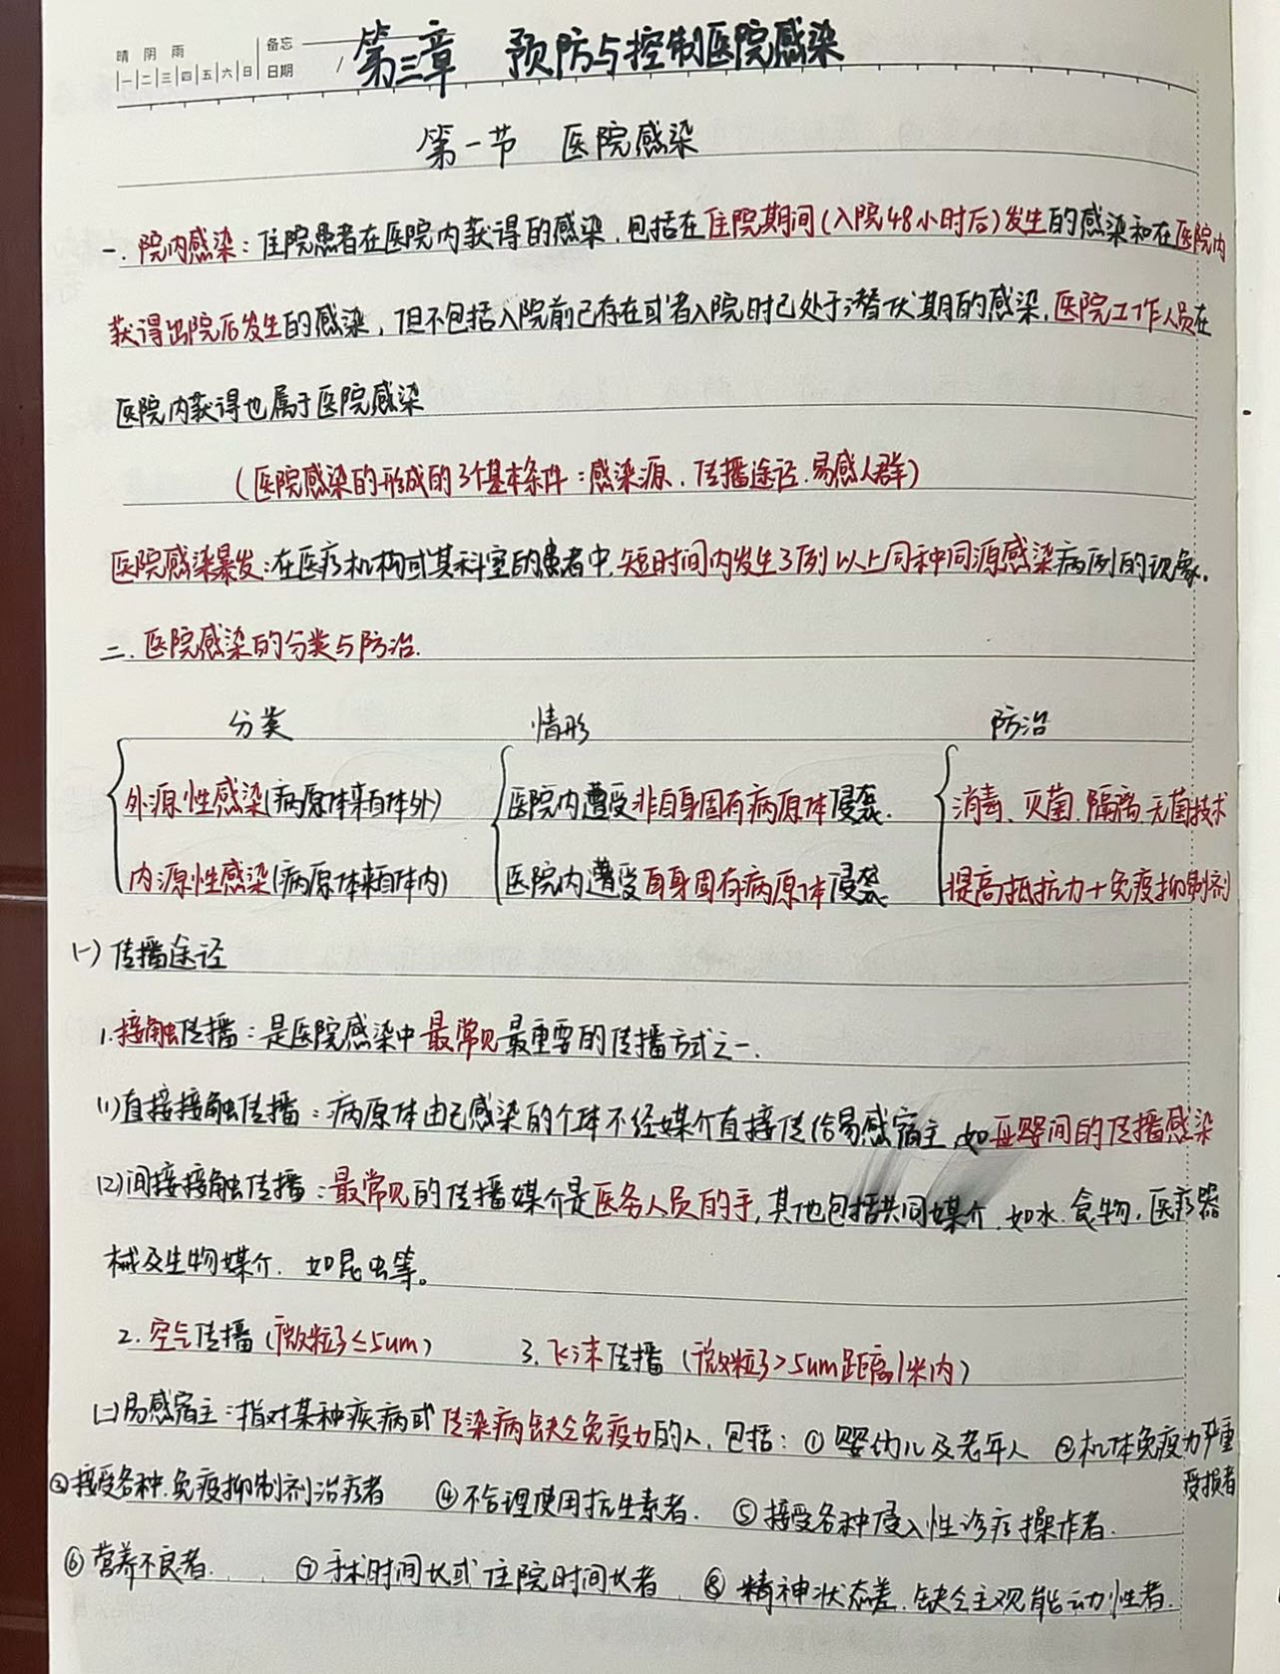 晴 阴 雨
备忘
一 二 三 四 五 六 日 日期
第三章 预防与控制医院感染
第一节 医院感染
一.院内感染:住院患者在医院内获得的感染,包括在住院期间(入院48小时后)发生的感染和在医院内
获得出院后发生的感染,但不包括入院前已存在或者入院时已处于潜伏期的感染.医院工作人员在
医院内获得也属于医院感染
(医院感染的形成的3个基本条件:感染源、传播途径、易感人群)
医院感染暴发:在医疗机构或其科室的患者中,短时间内发生3例以上同种同源感染病例的现象.
二.医院感染的分类与防治.
分类 情形 防治
外源性感染(病原体来自体外) 医院内遭受非自身固有病原体侵袭. 消毒、灭菌、隔离、无菌技术
内源性感染(病原体来自体内) 医院内遭受自身固有病原体侵袭 提高抵抗力+免疫抑制剂
(一)传播途径
1.接触传播:是医院感染中最常见最重要的传播方式之一.
(1)直接接触传播:病原体由已感染的个体不经媒介直接传给易感宿主,如母婴间的传播感染
(2)间接接触传播:最常见的传播媒介是医务人员的手,其他包括共同媒介,如水、食物,医疗器
械及生物媒介.如昆虫等。
2.空气传播(微粒子≤5um) 3.飞沫传播(微粒子>5um距离1米内)
(二)易感宿主:指对某种疾病或传染病缺乏免疫力的人,包括:①婴幼儿及老年人 ②机体免疫力严重
受损者
③接受各种免疫抑制剂治疗者 ④不合理使用抗生素者. ⑤接受各种侵入性诊疗操作者.
⑥营养不良者. ⑦手术时间长或住院时间长者 ⑧精神状态差,缺乏主观能动性者.